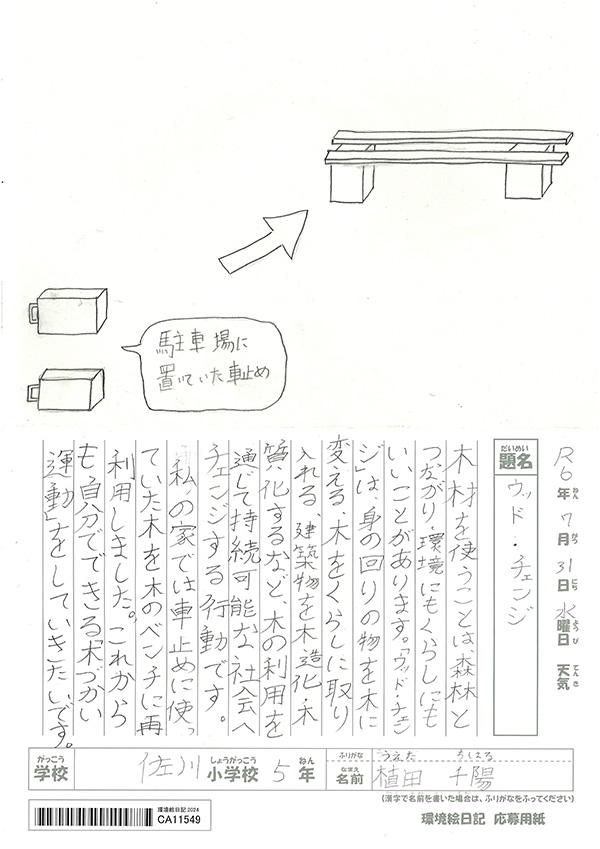 駐車場に
置いていた車止め
R6年 7月 31日 水曜日 天気
ねん がつ にち ようび てんき
だいめい
題名
ウッド・チェンジ
木材を使うことは、森林と
つながり・環境にもくらしにも
いいことがあります。「ウッド・チェン
ジ」は、身の回りの物を木に
変える、木をくらしに取り
入れる、建築物を木造化・木
質化するなど、木の利用を
通じて持続可能な社会へ
チェンジする行動です。
私の家では車止めに使っ
ていた木を木のベンチに再
利用しました。これから
も自分でできる「木づかい
運動」をしていきたいです。
がっこう しょうがっこう ねん
学校 佐川 小学校 5年
ふりがな うえた
なまえ
名前 植田 千陽
(漢字で名前を書いた場合は、ふりがなをふってください)
環境絵日記2024
CA11549
環境絵日記 応募用紙